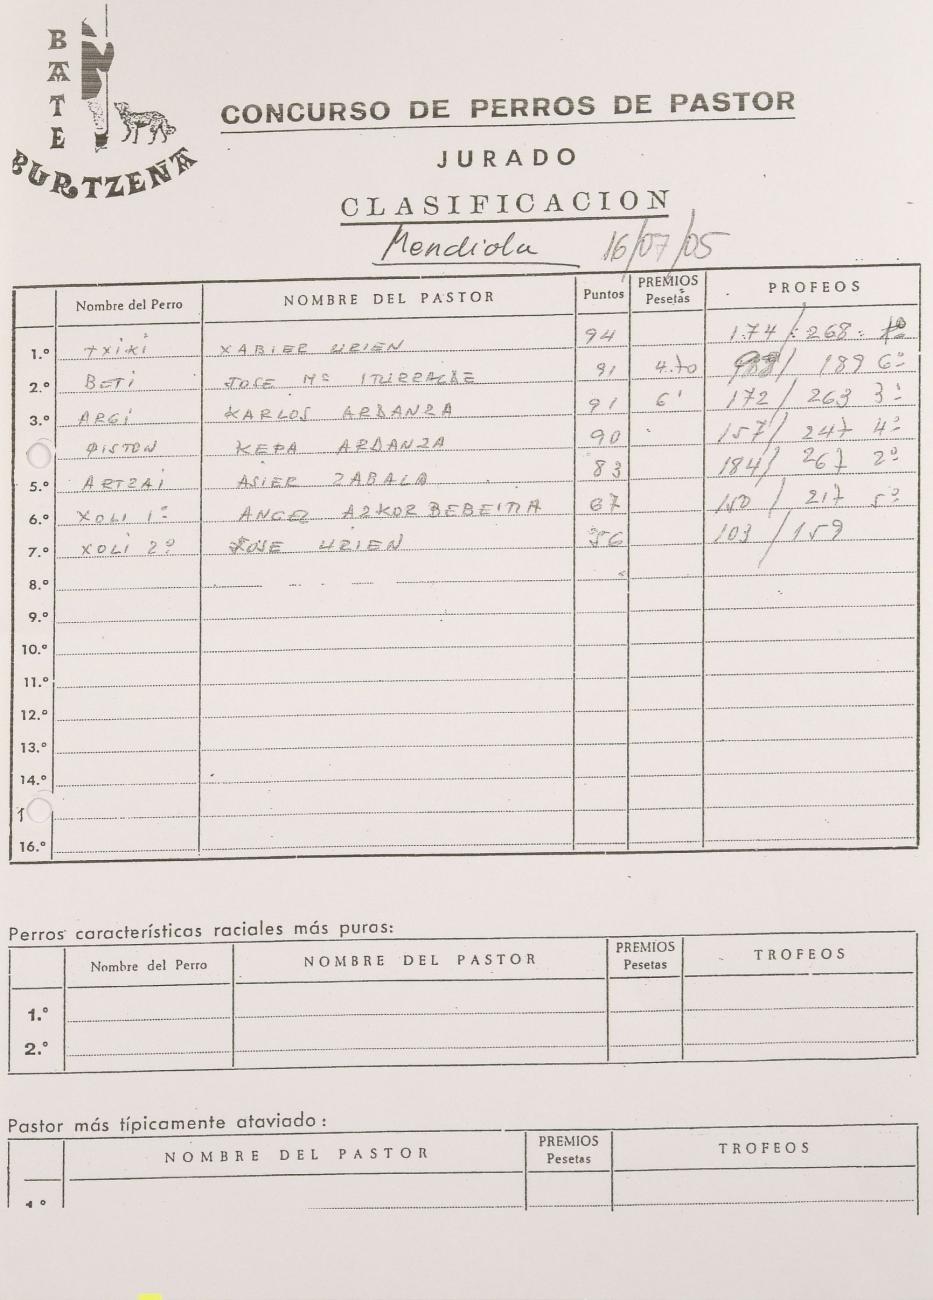 BATE
BURTZEÑA
CONCURSO DE PERROS DE PASTOR
JURADO
CLASIFICACION
Mendiola 16/07/05
Nombre del Perro NOMBRE DEL PASTOR Puntos PREMIOS Pesetas PROFEOS
1.º TXIKI XABIER URIEN 94 174/268 1º
2.º BETI JOSE Mº ITURRALDE 91 4.70 98/ 189 6º
3.º ARGI KARLOS ARDANZA 91 6' 172/ 263 3º
PISTON KEPA ARDANZA 90 157/ 247 4º
5.º ARTZAI ASIER ZABALA 83 184/ 267 2º
6.º XOLI 1º ANGEL AZKORBEBEITIA 67 150/ 217 5º
7.º XOLI 2º JOSE URIEN 56 103/159
8.º
9.º
10.º
11.º
12.º
13.º
14.º
1
16.º
Perros características raciales más puras:
Nombre del Perro NOMBRE DEL PASTOR PREMIOS Pesetas TROFEOS
1.º
2.º
Pastor más típicamente ataviado:
NOMBRE DEL PASTOR PREMIOS Pesetas TROFEOS
1.º